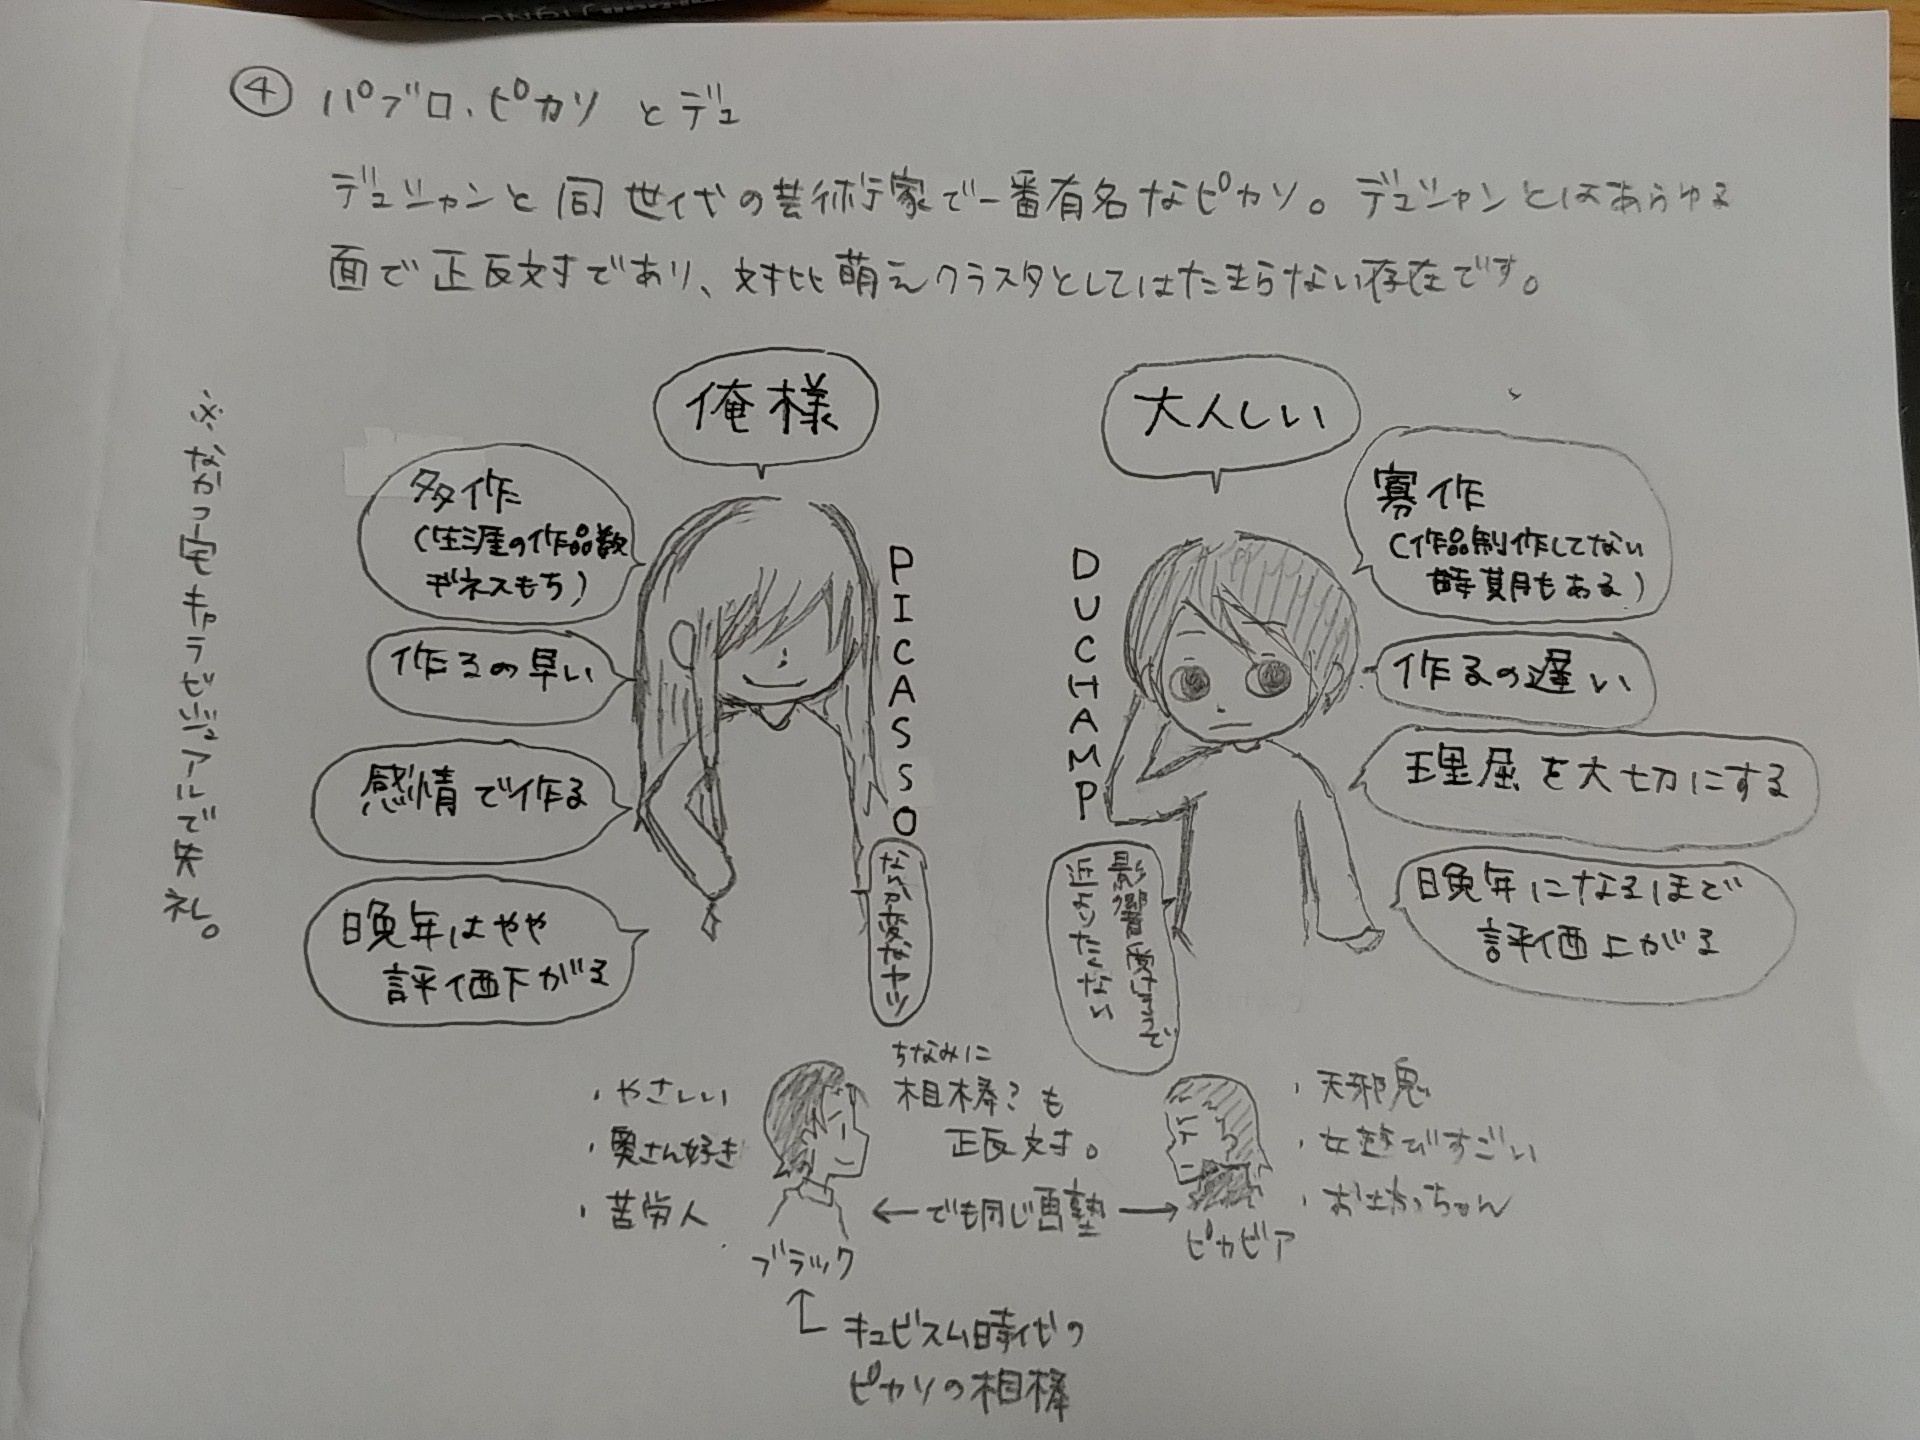 ④ パブロ・ピカソ とデュ
デュシャンと同世代の芸術家で一番有名なピカソ。デュシャンとはあらゆる
面で正反対であり、対比萌えクラスタとしてはたまらない存在です。
※なかつ宅キャラビジュアルで失礼。
俺様
多作
(生涯の作品数
ギネスもち)
作るの早い
感情で作る
晩年はやや
評価下がる
PICASSO
なんか変なヤツ
大人しい
DUCHAMP
影響受けそうで
近よりたくない
寡作
(作品制作してない
時期もある)
作るの遅い
理屈を大切にする
晩年になるほど
評価上がる
・やさしい
・奥さん好き
・苦労人
ブラック
ちなみに
相棒?も
正反対。
←でも同じ画塾→
ピカビア
・天邪鬼
・女遊びすごい
・おぼっちゃん
キュビスム時代の
ピカソの相棒